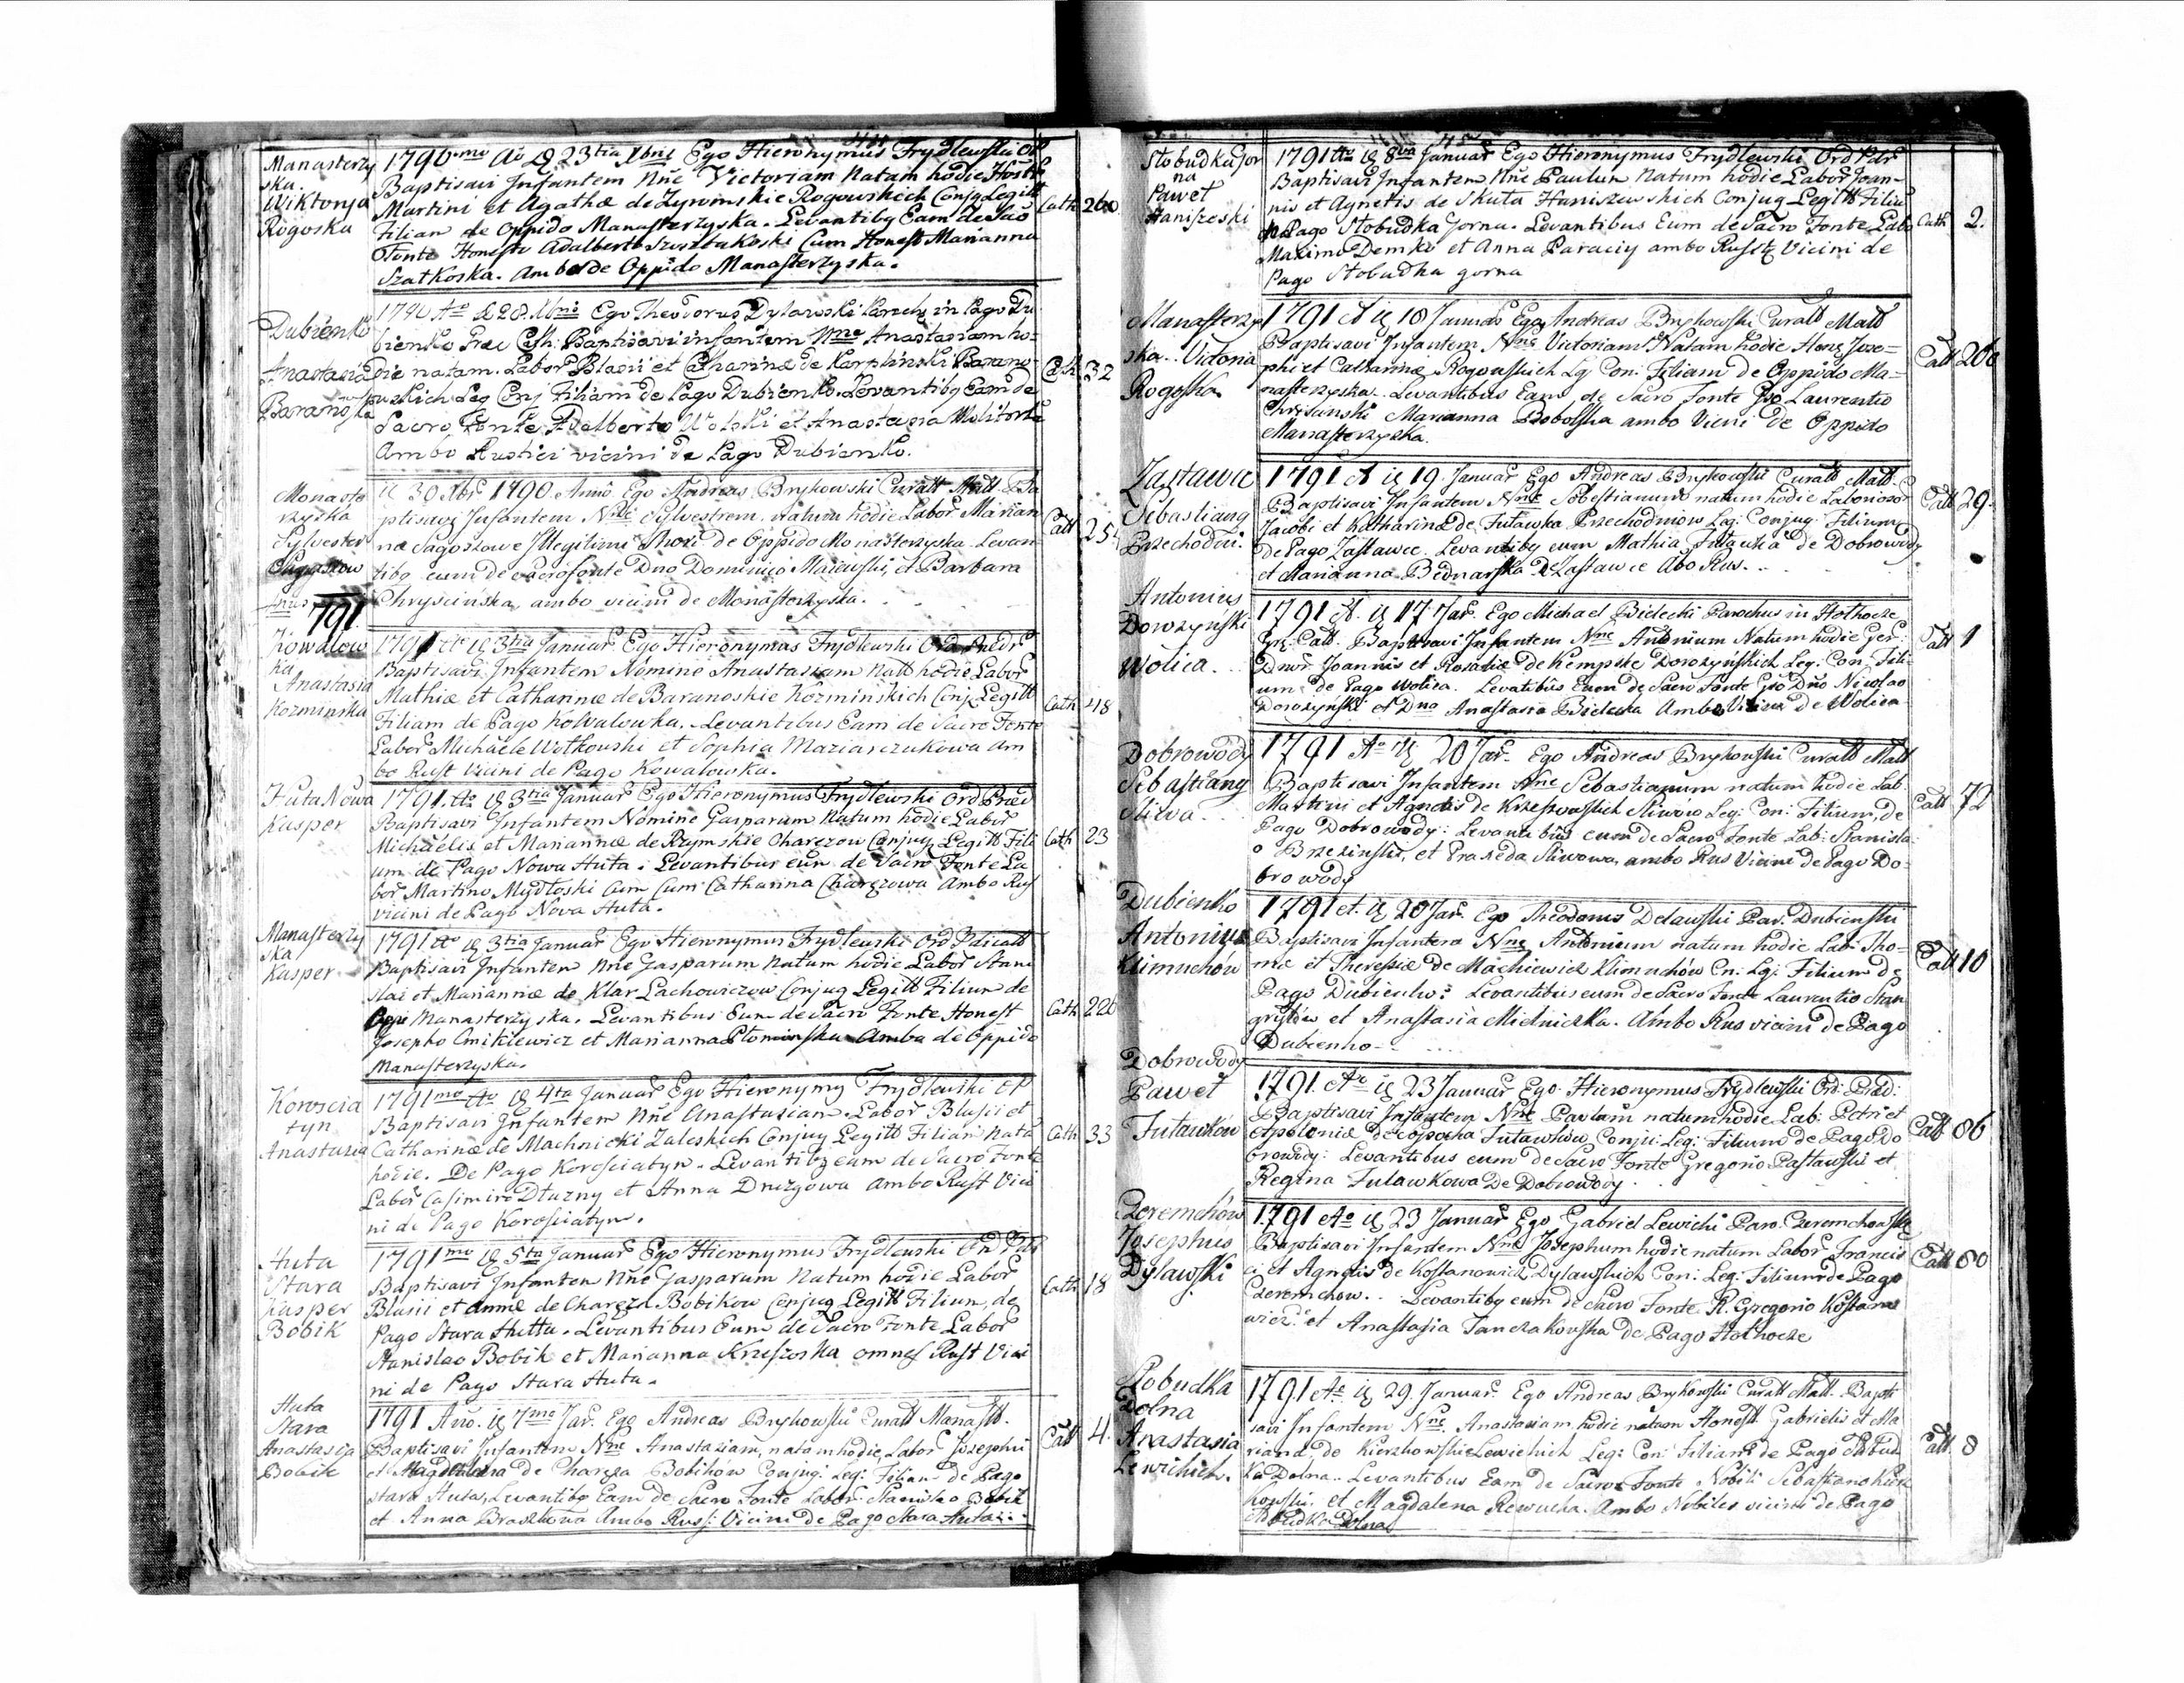 Manasterzy
ska.
Wiktorya
Rogoska
1790mo Ao d 23tia Xbris Ego Hieronymus Frydlewski Ord
Baptisavi Infantem Nne Victoriam Natam hodie Honest
Martini et Agathæ de Zywinskie Rogowskich Conjug Legitt
Filiam de Oppido Manasterzyska. Levantibg Eam de Sacro
Fonte Honesto Adalberto Cum Honest Marianna
Szatkoska. Ambo de Oppido Manasterzyska.
Cath 260
Dubienko
Anastasia
Baranoska
1790 Ao d 28 Xbris Ego Theodorus Dylawski Paroch in Pago Du
bienko Baptisavi infantem Nne Anastasiam ho
die natam. Labor Blasii et Catharinæ de Karplinski Barano
wskich Leg Conj Filiam de Pago Dubienko. Levantibg Eam de
Sacro Fonte Adalberto Wolski et Anastasia
Ambo Rustici vicini de Pago Dubienko.
Cath 32
Monaste
rzyska
Sylvester
d 30 Xbr 1790 Anno Ego Andreas Brykowski Curatt Mall Ba
ptisavi Infantem Nne Sylvestrem natum hodie Labor Marian
næ Sagosłowe Illegitimi Thori de Oppido Monasterzyska Levan
tibg eum de Sacro fonte Dno Dominico et Barbara
Chryscińska, ambo vicini de Monasterzyska.
Catt 25
791
Kowalow
ka
Anastasia
Kozminska
1791 Ao d 3tia Januar Ego Hieronymus Frydlewski Ord Praedr
Baptisavi Infantem Nomine Anastasiam Natt hodie Labor
Mathiæ et Catharinæ de Baranoskie Kozminskich Conj Legitt
Filiam de Pago Kowalowka. Levantibus Eam de Sacro Fonte
Labor Michaele Wotkowski et Sophia Maziarczukowa am
bo Rust Vicini de Pago Kowalowka.
Cath 48
Huta Nowa
Kasper
1791. Ao d 3tia Januar Ego Hieronymus Frydlewski Ord Præd
Baptisavi Infantem Nomine Gasparum Natum hodie Labor
Michaelis et Mariannæ de Rzymskie Charęzow Conjug Legitt Fili
um de Pago Nowa Huta. Levantibus eum de Sacro Fonte La
bor Martino Mydłoski Cum Catharina Charęzowa Ambo Rust
vicini de Pago Nova Huta.
Cath 23
Manasterzy
ska
Kasper
1791 Ao d 3tia Januar Ego Hieronymus Frydlewski Ord Pdicatt
Baptisavi Infantem Nne Gasparum Natum hodie Labor Stani
slai et Mariannæ de Klar Lachowiczow Conjug Legitt Filium de
Manasterzyska. Levantibus Eum de Sacro Fonte Honest
Josepho Cmikiewicz et Marianna Słominska Amba de Oppido
Manasterzyska.
Cath 220
Koroscia
tyn
Anastasia
1791mo Ao d 4ta Januar Ego Hieronymg Frydlewski OP
Baptisavi Infantem Nne Anastasiam Labor Blasii et
Catharinæ de Machnicki Zaleskich Conjug Legitt Filiam Nata
hodie. De Pago Korosciatyn. Levantibg eam de Sacro Fonte
Labor Casimiro Dłuzny et Anna Druzgowa Ambo Rust Vici
ni de Pago Korosciatyn.
Cath 33
Huta
Stara
Kasper
Bobik
1791mo d 5ta Januar Ego Hieronymus Frydlewski Ord
Baptisavi Infantem Nne Gasparum Natum hodie Labor
Blasii et Annæ de Charęza Bobikow Conjug Legitt Filium, de
Pago Stara Hutta. Levantibus Eum de Sacro Fonte Labor
Stanislao Bobik et Marianna Krzeszoska omnes Rust Vici
ni de Pago Stara Huta.
Cath 18
Huta
Stara
Anastasia
Bobik
1791 Ano. d 7mo Jar. Ego Andreas Brykowski Curatt Manastt.
Baptisavi Infantem Nne Anastaziam, natam hodie, Labor Josephi
et Magdalena de Charęza Bobików Conjug: Leg: Filiam de Pago
stara Huta, Levantibg Eam de Sacro Fonte Labor. Stanislao Bobik
et Anna Braszkowa Ambo Rus: Vicini de Pago Stara Huta.
Catt 4.
Słobudka gor
na
Paweł
Haniszeski
1791 Ao d 8va Januar Ego Hieronymus Frydlewski Ord Pdr
Baptisavi Infantem Nne Paulum Natum hodie Labor Joan-
nis et Agnetis de Skuta Haniszewskich Conjug Legitt Filiu
de Pago Słobudka Gorna. Levantibus Eum de Sacro Fonte Labo
Maximo Demko et Anna Paraciy ambo Rustg Vicini de
Pago Słobudka gorna
Cath 2.
Manasterzy
ska. Victoria
Rogoska
1791 A d 18 Januar Ego Andreas Brykowski Curatt Matt
Baptisavi Infantem Nne Victoriam Natam hodie Hone Jose=
phi et Catharinæ Rogowskich Lg Con: Filiam de Oppido Ma-
nasterzyska. Levantibus Eam de Sacro Fonte Laurentio
Chrisanski Marianna Bobolska ambo Vicini de Oppido
Manasterzyska.
Catt 260
Zastawce
Sibastiang
Przechodni.
1791 A d 19. Januar Ego Andreas Brykowski Curatt Matt.
Baptisavi Infantem Nne Sebestianum natum hodie Laborioso
Jacobi et Katharinæ de Futawka Przechodniow Leg: Conjug: Filium
de Pago Zastawce. Levantibg eum Mathia Futawka de Dobrowody
et Marianna Bednarska de Zastawce Abo Rus.
Catt 29.
Antonius
Dorozynski
Wolica.
1791 A. d 17 Jar. Ego Michael Bielecki Parochus in Hołhocze
Gr: Catt. Baptisavi Infantem Nne Antonium Natum hodie Ger:
Dnor Joannis et Rosaliæ de Kempske Dorozyńskich Leg: Con: Fili-
um de Pago Wolica. Levatibus Eum de Sacro Fonte Dno Nicolao
Dorozyński et Dna Anastasia Bielecka Ambo Vicini de Wolica
Catt 1
Dobrowody
Sebastiang
Sliwa.
1791 Ao d 20 Jar. Ego Andreas Brykowski Curatt Matt
Baptisavi Infantem Nne Sebastianum natum hodie Lab
Martini et Agnetis de Krzeswoskich Sliwow Leg: Con: Filium, de
Pago Dobrowody: Levantibus eum de Sacro Fonte Lab: Stanisla-
o Brzezinski, et Praxeda Sliwowa, ambo Rus Vicini de Pago Do-
browody
Catt 72
Dubienko
Antonius
Klimuchów
1791 A. d 20 Jar. Ego Theodorus Delawski Par. Dubienski
Baptisavi Infantem Nne Antonium natum hodie Lab: Tho=
mæ et Theresiæ de Machiewicz Klimuchów Cn: Lg: Filium de
Pago Dubienko: Levantibus eum de Sacro Fonte Laurentio Stan
gryslow et Anastasia Mielniczka. Ambo Rus vicini de Pago
Dubienko
Catt 10
Dobrowody
Paweł
Futawków
1791. Ao d 23 Januar Ego Hieronymus Frydlewski Ord: Præd:
Baptisavi Infantem Nne Paulum natum hodie Lab: Petri et
Apoloniæ de Copocha Futawkow, Conju: Leg: Filium de Pago Do
browody: Levantibus eum de Sacro Fonte Gregorio Pastawski et
Regina Futawkowa De Dobrowody.
Catt 86
Czeremchów
Josephus
Dylawski
1791 Ao d 23 Januar Ego Gabriel Lewicki Paro. Czeremchowski
Baptisavi Infantem Nne Josephum hodie natum Labor Francis
ci et Agnetis de Kostanowicz Dylawskich Con: Leg: Filium de Pago
Czeremchow. Levantibg eum de Sacro Fonte R. Gregorio Kostano
wicz: et Anastasia Janczakowska de Pago Hołhocze
Catt 60
Słobudka
Dolna
Anastasia
Lewickich.
1791 Ao d 29. Januar. Ego Andreas Brykowski Curatt Matt. Bapti
savi Infantem Nne. Anastasiam hodie natam Honest. Gabrielis et Ma
rianna de Kierzkowskie Lewickich Leg: Con: Filiam de Pago Słobud
ka Dolna. Levantibus Eam de Sacro Fonte Nobili Sebastiano Kierz
kowski. et Magdalena Rewucka. Ambo Nobiles vicini de Pago
Słobudka Dolna
Catt. 8